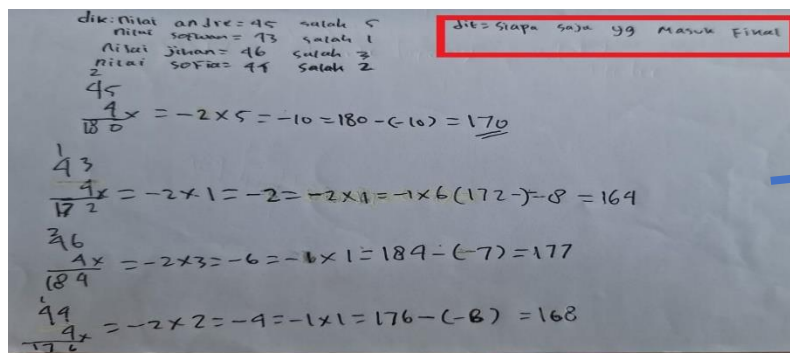 dik: nilai andre = 45 salah 5
nilai sofwan = 43 salah 1
nilai jihan = 46 salah 3
nilai sofia = 44 salah 2
dit = siapa saja yg masuk Final
2
45
4x = -2 x 5 = -10 = 180 - (-10) = 170
180
1
43
4x = -2 x 1 = -2 = -2 x 1 = -1 x 6 (172 -) = -8 = 164
172
2
46
4x = -2 x 3 = -6 = -1 x 1 = 184 - (-7) = 177
184
1
44
4x = -2 x 2 = -4 = -1 x 1 = 176 - (-8) = 168
176